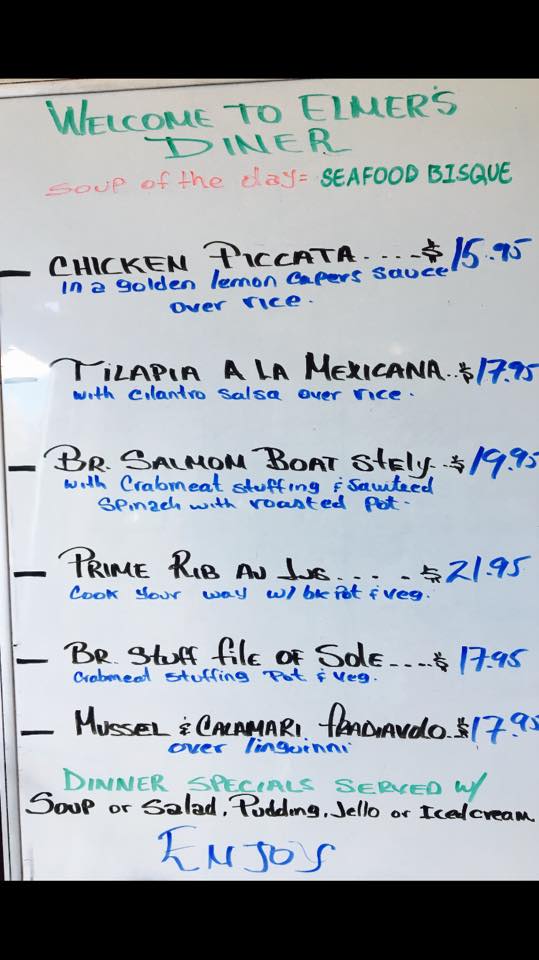 WELCOME TO ELMER'S
DINER
Soup of the day= SEAFOOD BISQUE
— CHICKEN PICCATA.....$15.95
in a golden lemon capers sauce
over rice.
— TILAPIA A LA MEXICANA..$17.95
with cilantro salsa over rice.
— BR. SALMON BOAT Stely..$19.95
with Crabmeat stuffing & Sawteed
Spinach with roasted Pot.
— PRIME RIB AU JUS.... .$21.95
Cook your way w/ bk Pot & veg.
— BR. Stuff file OF Sole....$17.95
Crabmeat stuffing Pot & veg.
— MUSSEL & CALAMARI FRADIAVDO.$17.95
over linguinni
DINNER SPECIALS SERVED W/
Soup or Salad, Pudding, Jello or Icedcream
ENJOY